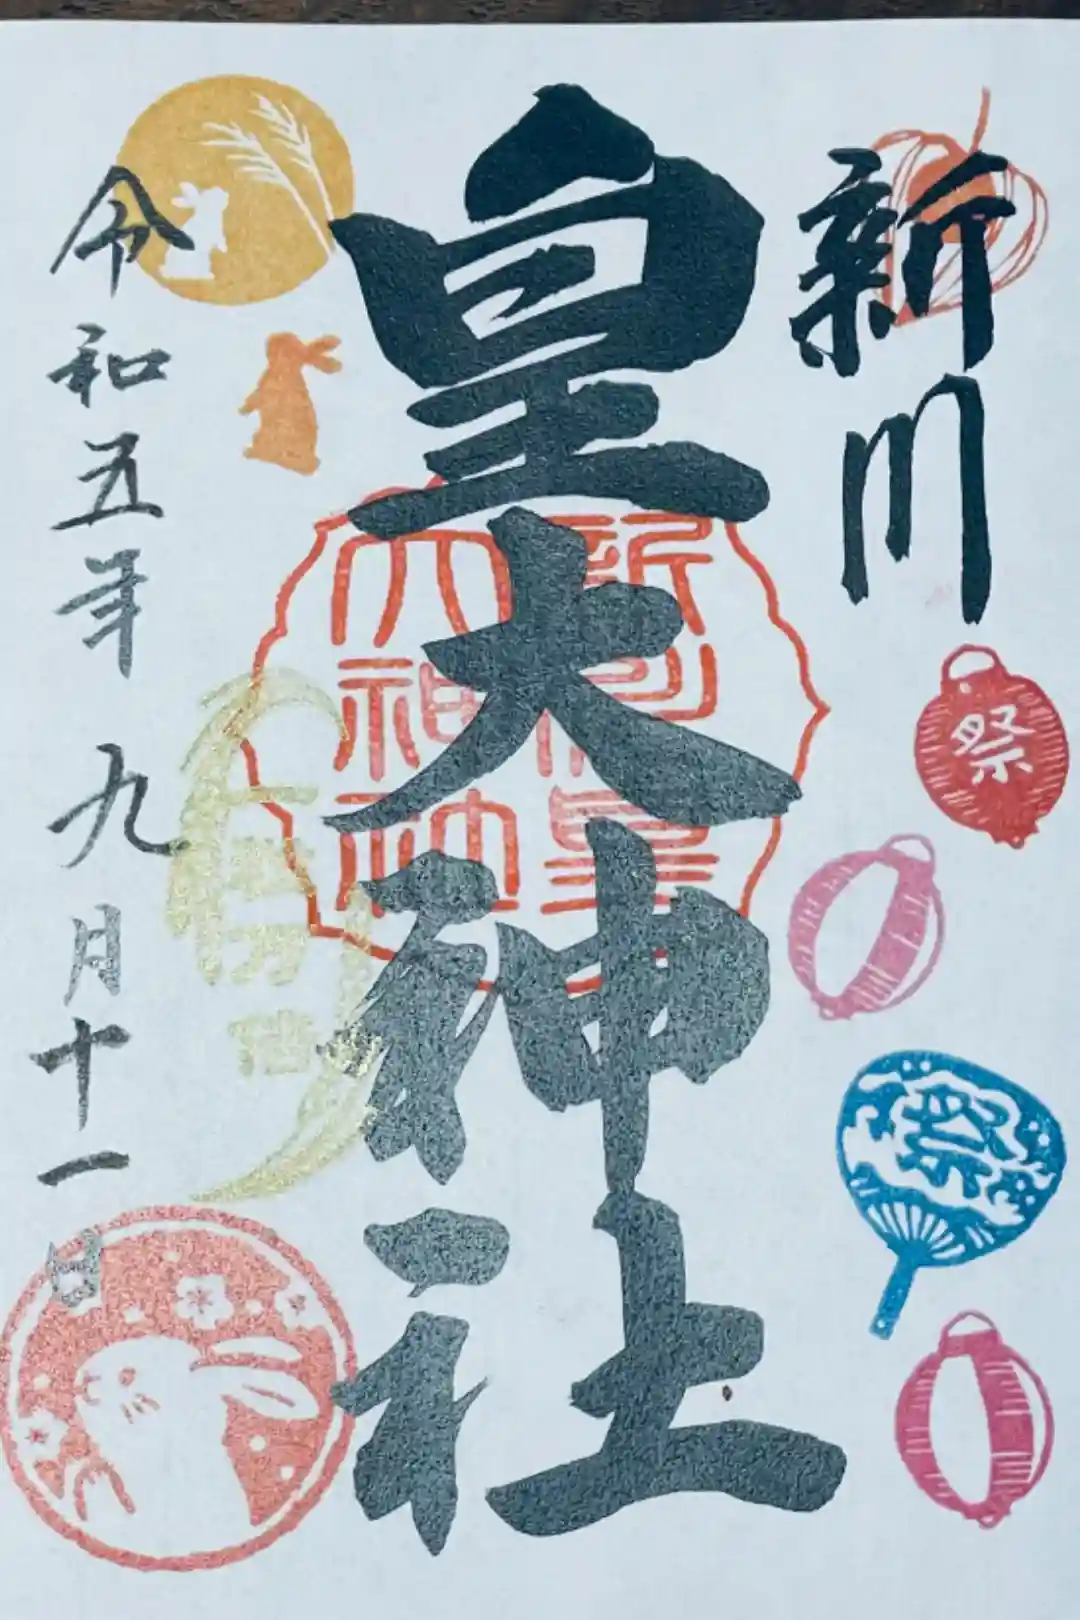 新川
皇大神社
令和五年九月十一日
祭
祭
新川皇
大神社